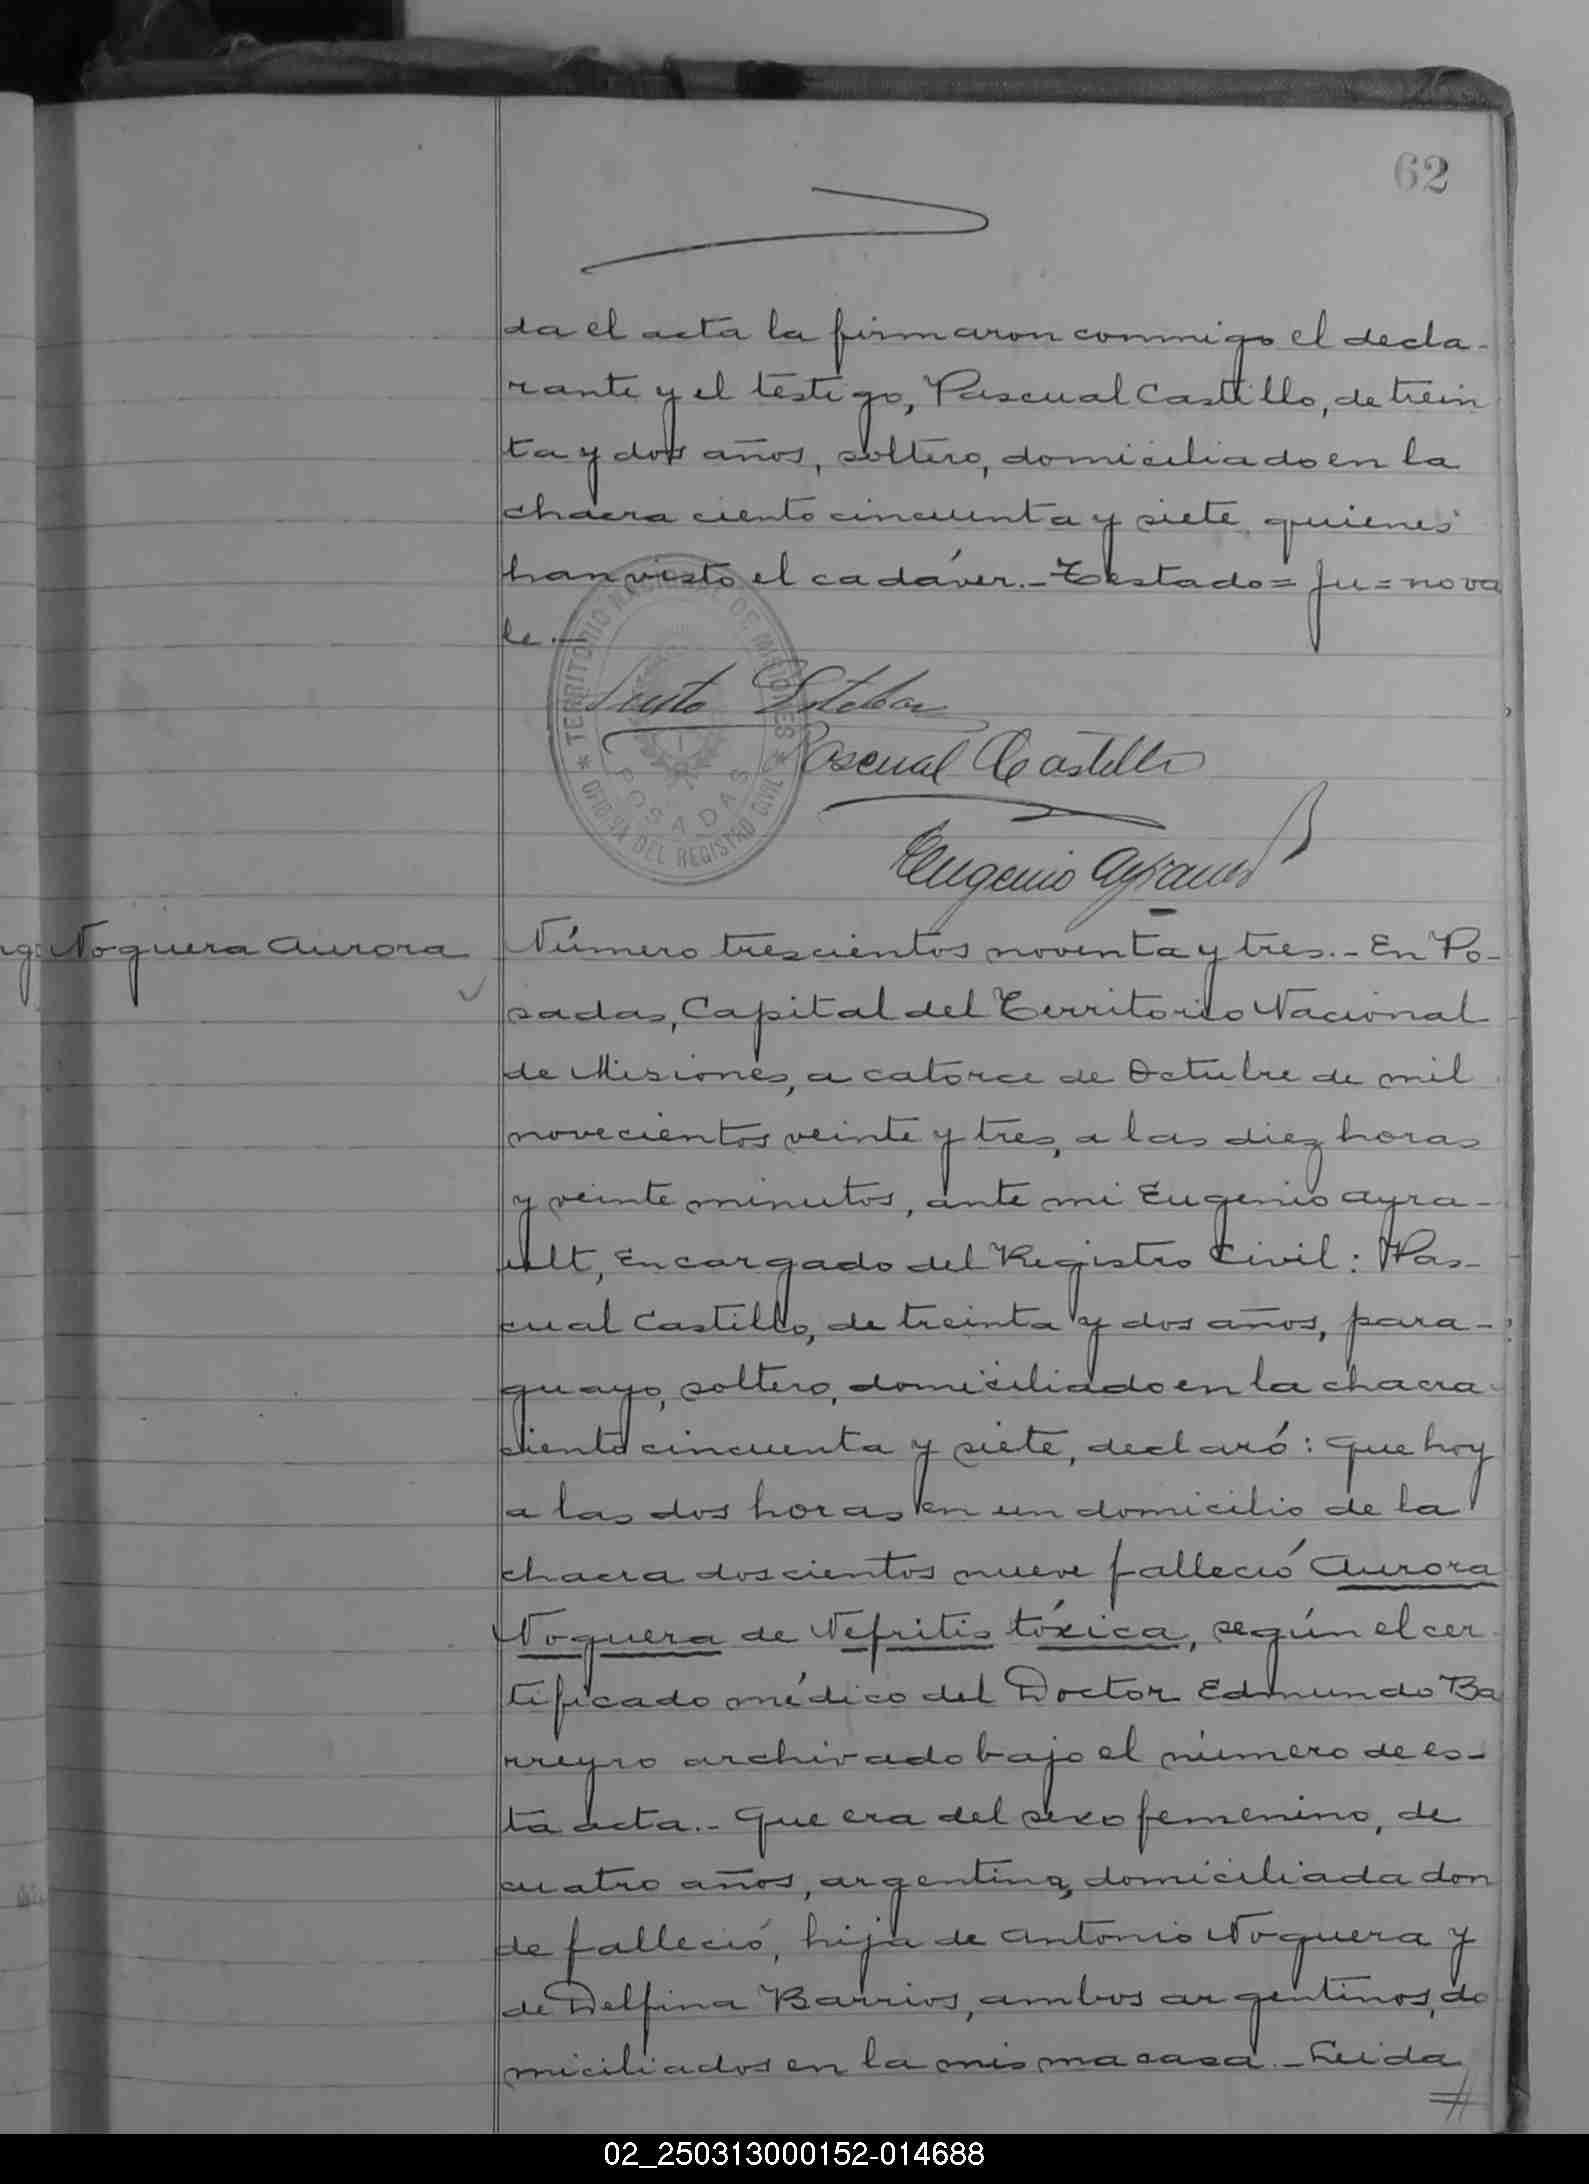 62
da el acta la firmaron conmigo el decla-
rante y el testigo, Pascual Castillo, de trein
ta y dos años, soltero, domiciliado en la
chacra ciento cincuenta y siete, quienes
han visto el cadáver.- Testado = fu = no va
le.-
TERRITORIO NACIONAL DE MISIONES
OFICINA DEL REGISTRO CIVIL
POSADAS
Esteban
Pascual Castillo
Eugenio Ayrault
Noguera Aurora
Número trescientos noventa y tres.- En Po-
sadas, Capital del Territorio Nacional
de Misiones, a catorce de Octubre de mil
novecientos veinte y tres, a las diez horas
y veinte minutos, ante mi Eugenio Ayra-
ult, Encargado del Registro Civil: Pas-
cual Castillo, de treinta y dos años, para-
guayo, soltero, domiciliado en la chacra
ciento cincuenta y siete, declaró: Que hoy
a las dos horas en un domicilio de la
chacra doscientos nueve falleció Aurora
Noguera de Nefritis tóxica, según el cer
tificado médico del Doctor Edmundo Ba
rreyro archivado bajo el número de es-
ta acta.- Que era del sexo femenino, de
cuatro años, argentina, domiciliada don
de falleció, hija de Antonio Noguera y
de Delfina Barrios, ambos argentinos, do
miciliados en la misma casa.- Leida
02_250313000152-014688